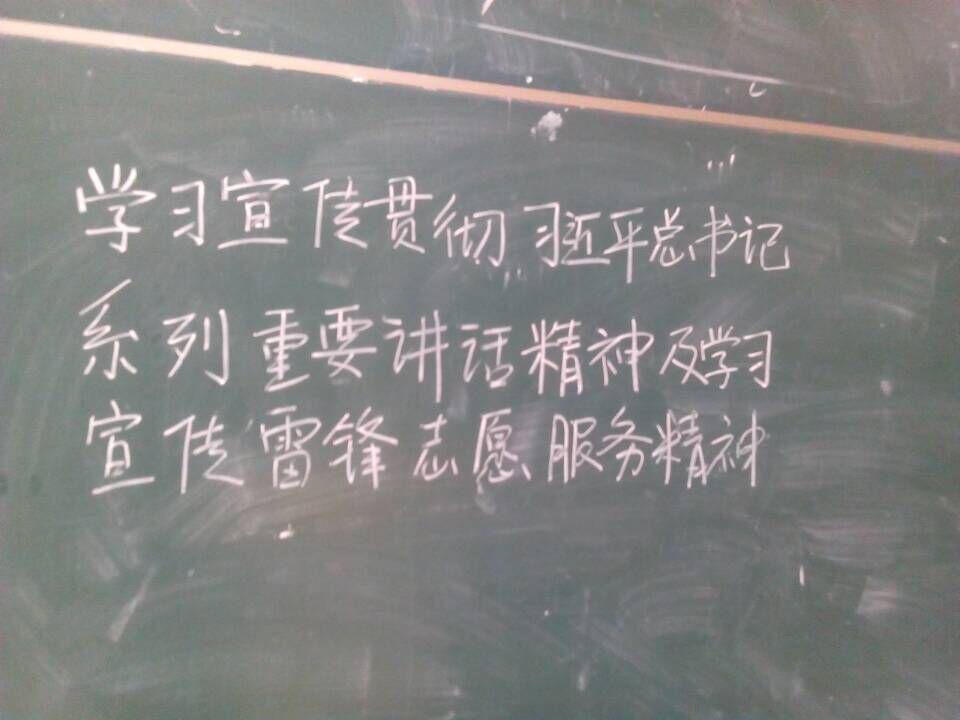 学习宣传贯彻习近平总书记
系列重要讲话精神及学习
宣传雷锋志愿服务精神